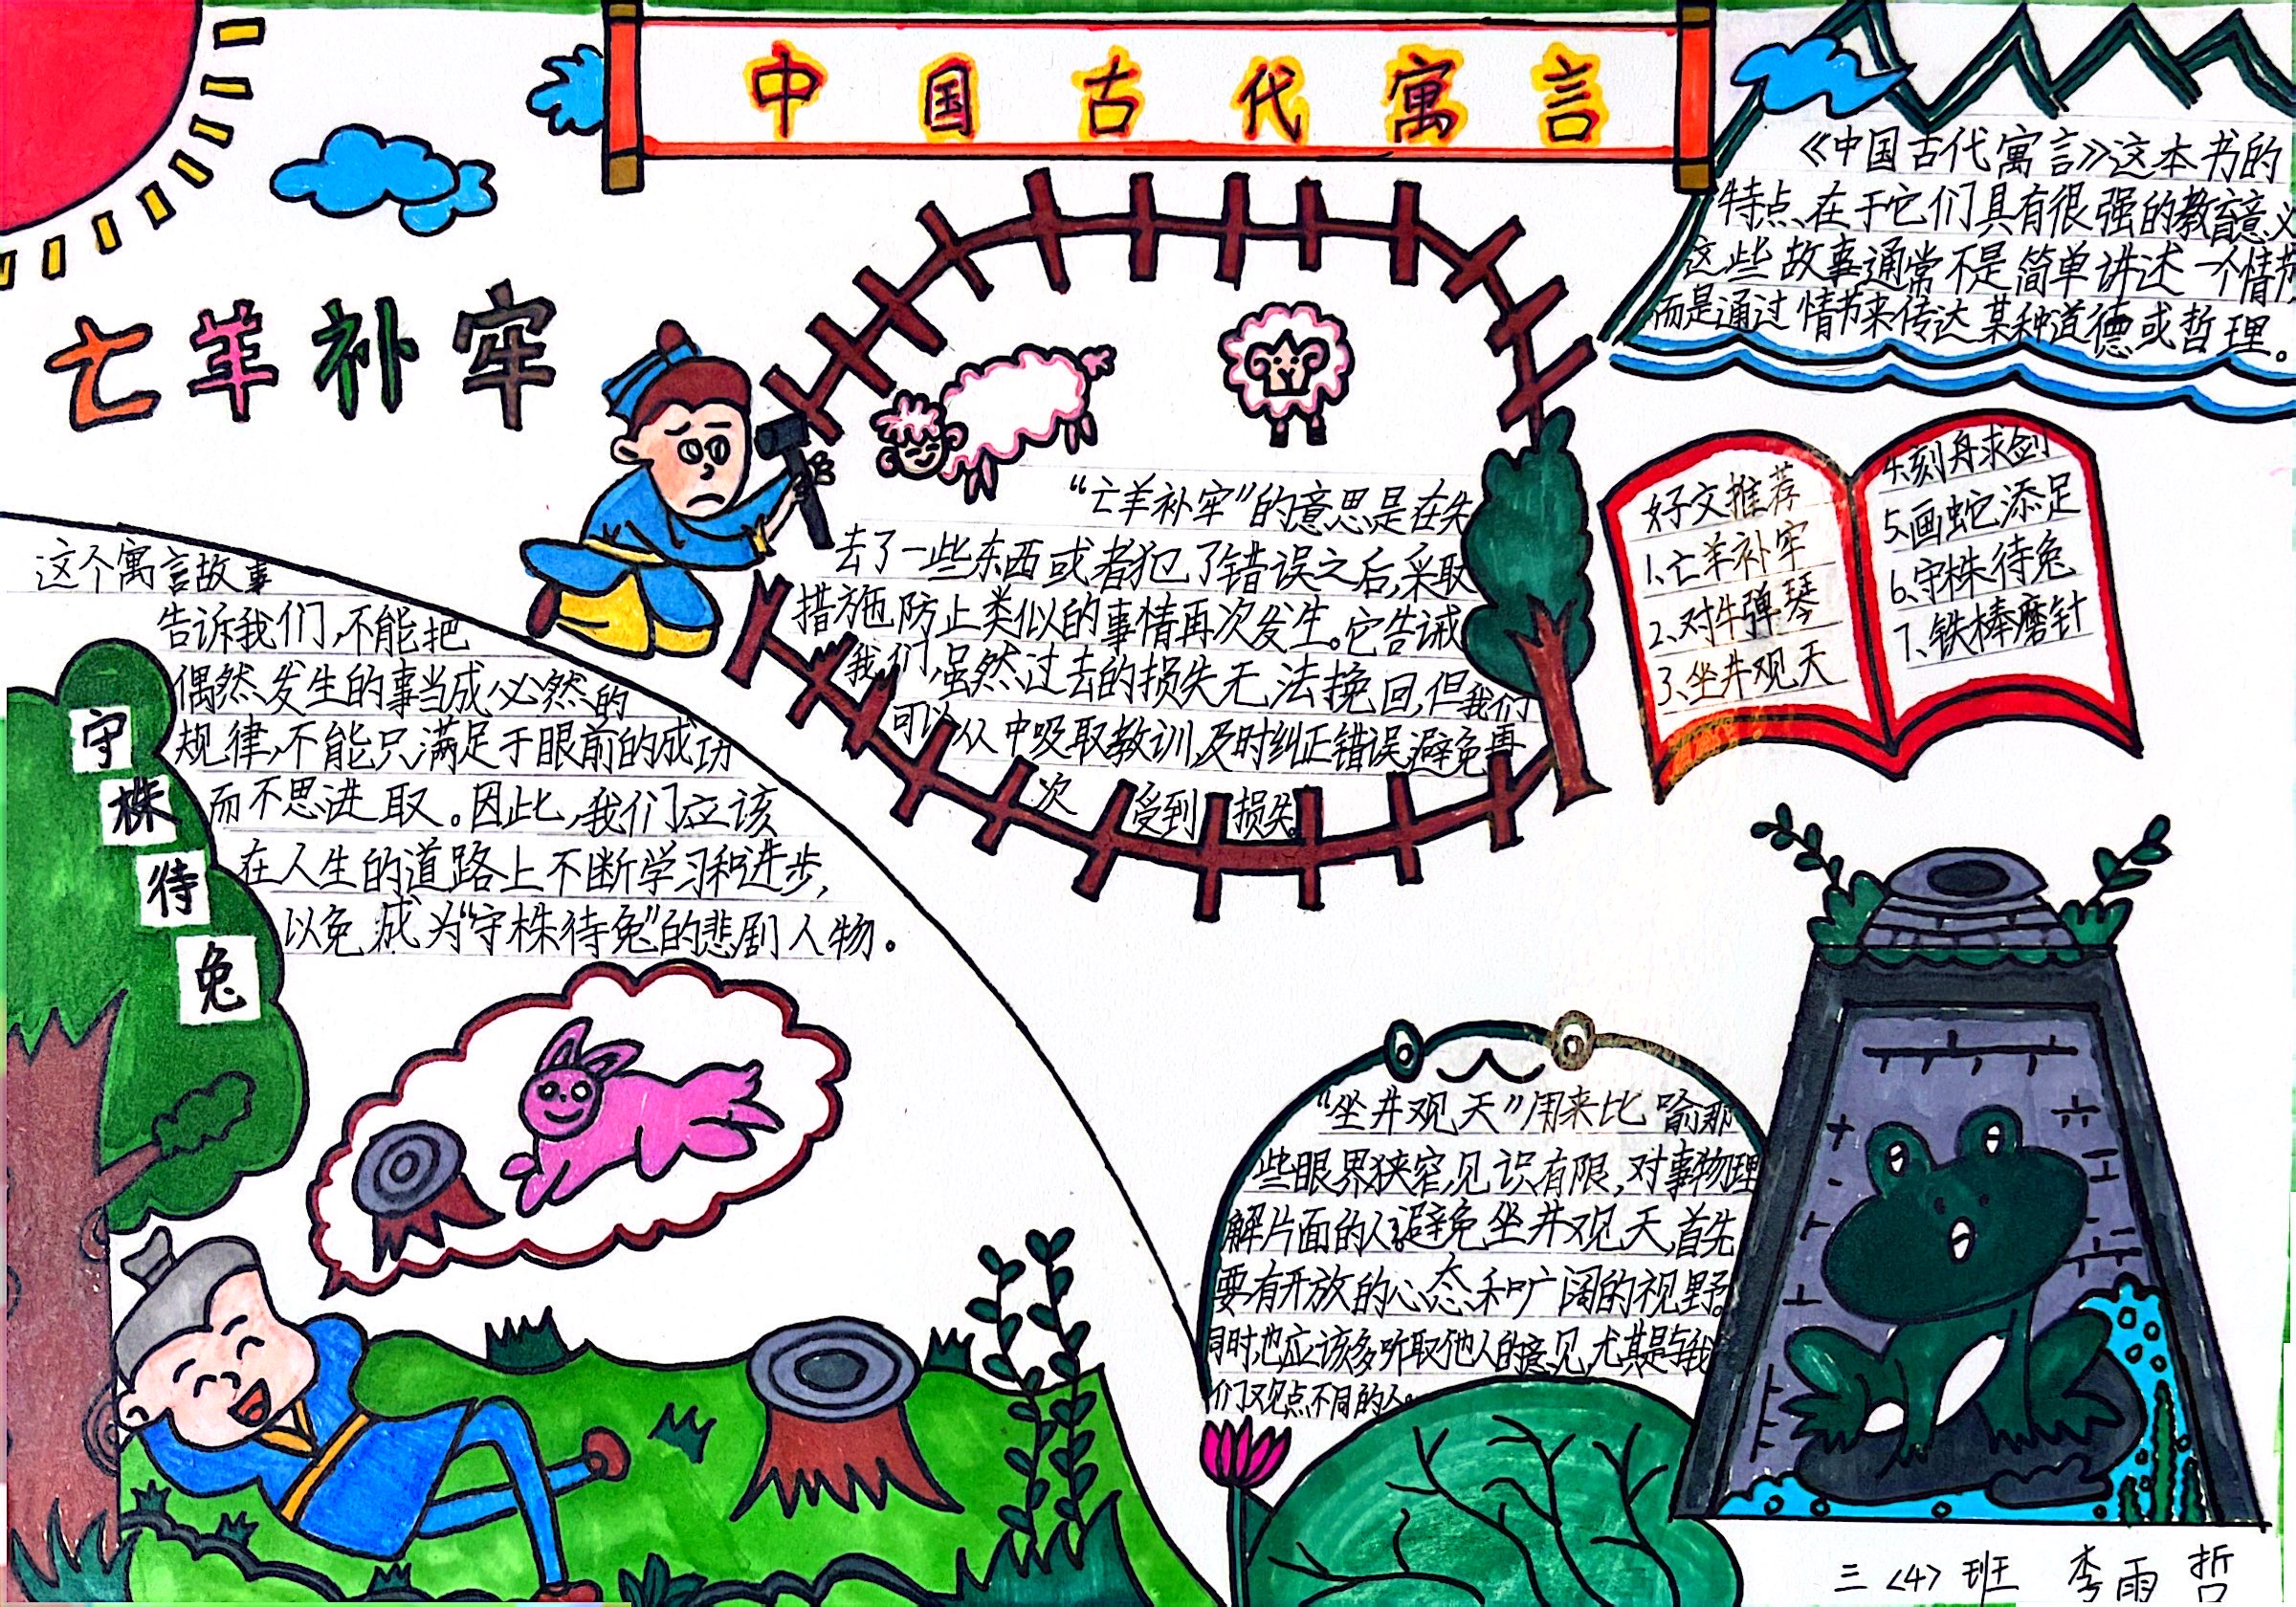 中国古代寓言
《中国古代寓言》这本书的
特点,在于它们具有很强的教育意义
这些故事通常不是简单讲述一个情节
而是通过情节来传达某种道德或哲理。
亡羊补牢
“亡羊补牢”的意思是在失
去了一些东西或者犯了错误之后,采取
措施防止类似的事情再次发生。它告诫
我们,虽然过去的损失无法挽回,但我们
可以从中吸取教训,及时纠正错误,避免再
次受到损失。
好文推荐
1、亡羊补牢
2、对牛弹琴
3、坐井观天
4、刻舟求剑
5、画蛇添足
6、守株待兔
7、铁棒磨针
守株待兔
这个寓言故事
告诉我们,不能把
偶然发生的事当成必然的
规律,不能只满足于眼前的成功
而不思进取。因此,我们应该
在人生的道路上不断学习和进步,
以免成为“守株待兔”的悲剧人物。
“坐井观天”用来比喻那
些眼界狭窄,见识有限,对事物理
解片面的人。避免坐井观天,首先
要有开放的心态和广阔的视野。
同时,也应该多听取他人的意见,尤其是与我
们观点不同的人。
三〈4〉班 李雨哲